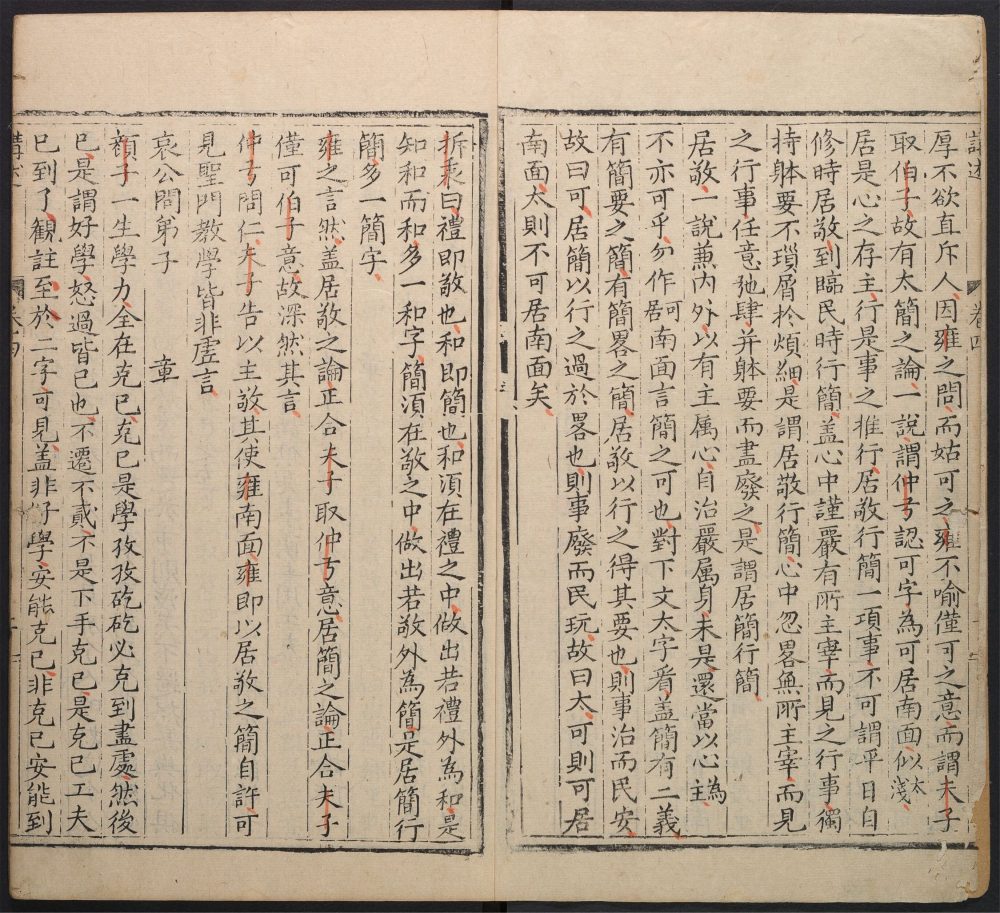 講述 卷四
厚不欲直斥人因雍之問而姑可之雍不喻僅可之意而謂夫子
取伯子故有太簡之論一說謂仲弓認可字為可居南面似太淺
居是心之存主行是事之推行居敬行簡一項事不可謂平日自
修時居敬到臨民時行簡盖心中謹嚴有所主宰而見之行事獨
持躰要不瑣屑扵煩細是謂居敬行簡心中忽畧無所主宰而見
之行事任意弛肆并躰要而盡廢之是謂居簡行簡
居敬一說兼內外以有主属心自治嚴属身未是還當以心主為
不亦可乎勿作可居南面言簡之可也對下文太字看盖簡有二義
有簡要之簡有簡畧之簡居敬以行之得其要也則事治而民安
故曰可居簡以行之過於畧也則事廢而民玩故曰太可則可居
南面太則不可居南面矣
拆衷曰禮即敬也和即簡也和湏在禮之中做出若禮外為和是
知和而和多一和字簡湏在敬之中做出若敬外為簡是居簡行
簡多一簡字
雍之言然盖居敬之論正合夫子取仲弓意居簡之論正合夫子
僅可伯子意故深然其言
仲弓問仁夫子告以主敬其使雍南面雍即以居敬之簡自許可
見聖門教學皆非虛言
哀公問弟子 章
顏子一生學力全在克已克已是學孜孜矻矻必克到盡處然後
已是謂好學怒過皆已也不遷不貳不是下手克已是克已工夫
已到了觀註至於二字可見盖非好學安能克已非克已安能到
講述 卷四